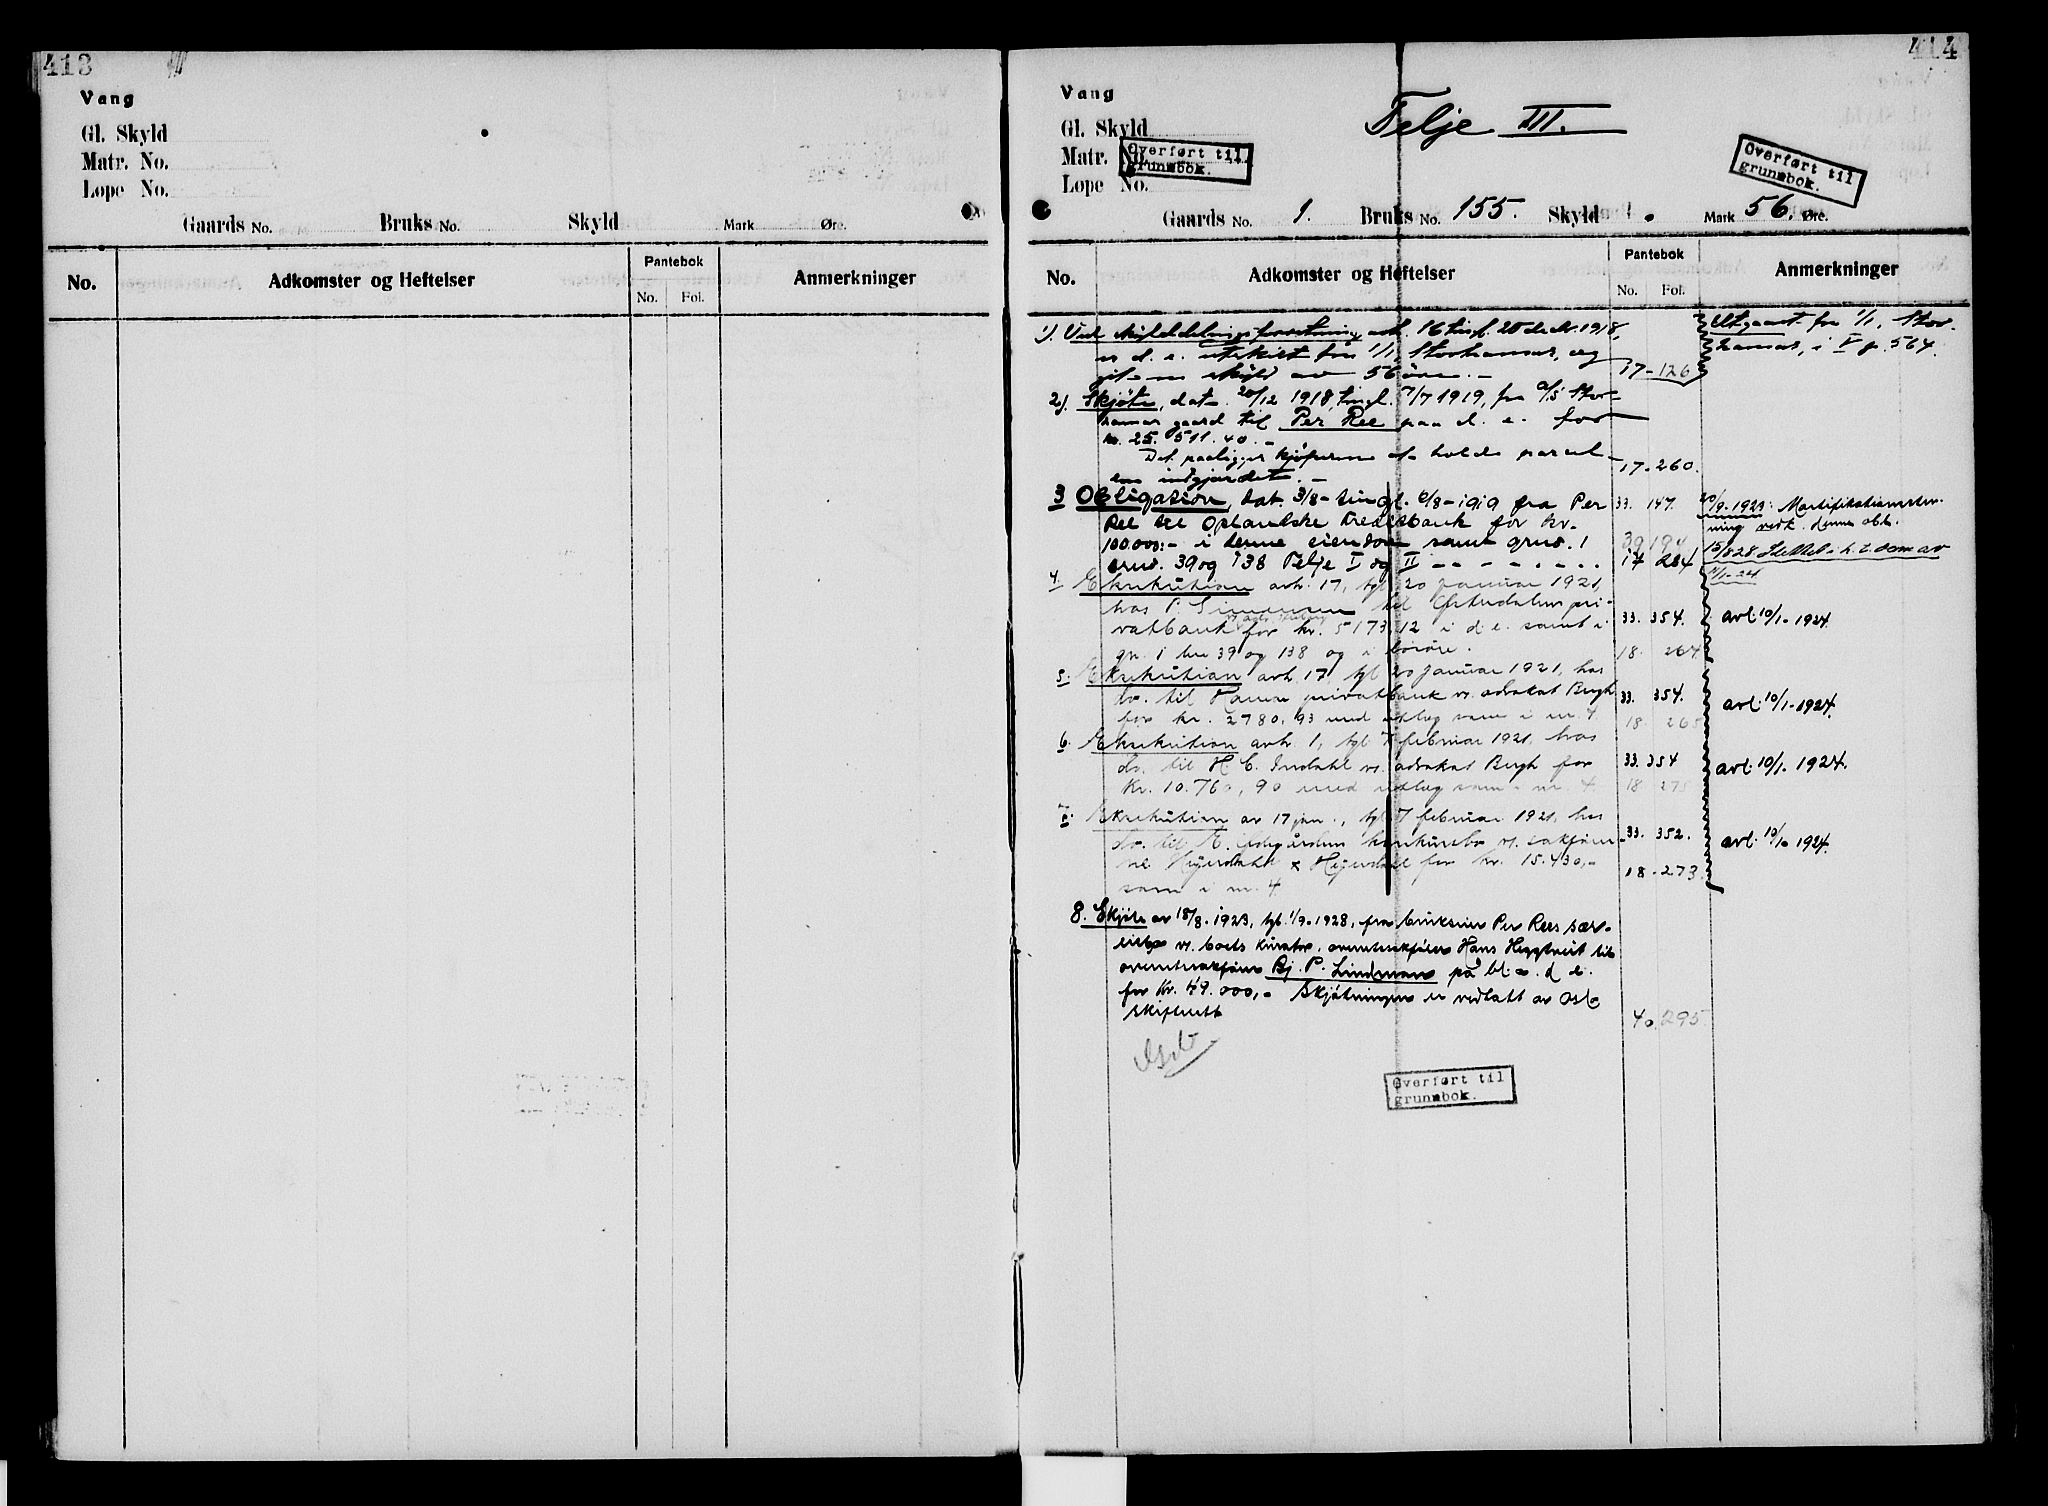 413
Vang
Gl. Skyld
Matr. No.
Lope No.
Gaards No. Bruks No. Skyld Mark Øre.
No. Adkomster og Heftelser Pantebok Anmerkninger
No. Fol.
414
Vang
Gl. Skyld
Matr. No.
Lope No.
Telje III.
Overført til
grunnbok.
Overført til
grunnbok.
Gaards No. 1. Bruks No. 155. Skyld . Mark 56. Øre.
No. Adkomster og Heftelser Pantebok Anmerkninger
No. Fol.
1). Ved skylddelingsforretning avh. 16 tingl. 20 decbr. 1918,
er d. e. utskilt fra 1/1, Storhamar, og
git en skyld av 56 øre. - 17-126
Utgaat fra 1/1, Stor-
hamar, i V p. 564.
2). Skjøte, dat. 20/12 1918, tingl. 7/7 1919, fra A/S Stor-
hamar gaard til Per Ree paa d. e. for
kr. 25.511.40. -
Det paaligger kjøperne at holde parcel-
len indgjærdet. - 17-260.
3 Obligasion, dat. 3/8 - tingl. 6/8 - 1919 fra Per 33. 147.
Ree til Oplandske Kreditbank for kr.
100.000:- i denne eiendom samt grno. 1 39 194
brno. 39 og 138 Telje I og II - - - - - - - 17 284
20/9-1923: Mortifikationsstev-
ning vedk. denne obl.
15/8 28 Slettet i h. t. dom av
11/1-24
4. Eksekution avh. 17, tgl. 20 januar 1921,
hos P. Simensen til Østerdalens pri-
vatbank for kr. 5173,12 i d e. samt i 33. 354.
gn. 1 bn 39 og 138 og i løsøre. 18. 264
avl. 10/1-1924.
5. Eksekution avh. 17, tgl 20 januar 1921, hos
do. til Hamar privatbank v. advokat Bugh 33. 354.
for kr. 2780,93 med utlæg som i nr. 4. 18. 265
avl. 10/1-1924.
6. Eksekution avh. 1, tgl. 7 februar 1921, hos
do. til H. C. Indahl v. advokat Bugh for 33. 354
kr. 10.760,90 med utlæg som i nr. 4. 18 275
avl. 10/1. 1924.
7. Eksekution av 17 jan., tgl 7 februar 1921, hos
do. til konkursbo v. sakfører- 33. 352.
ne Heyerdahl & Heyerdahl for kr. 15.430,- 18-273.
som i nr. 4
avl. 10/1 1924.
8. Skjøte av 18/8. 1923, tgl. 1/9-1928, fra bruksier Per Rees sær-
eiebo v. boets kurator, overretssakfører Hans Heggtveit til
overretssakfører Bj. P. Lindman på bl. a. d. e.
for kr. 49.000,- Skjøtningen er vedtatt av Oslo
Skifterett 40. 295.
Overført til
grunnbok.